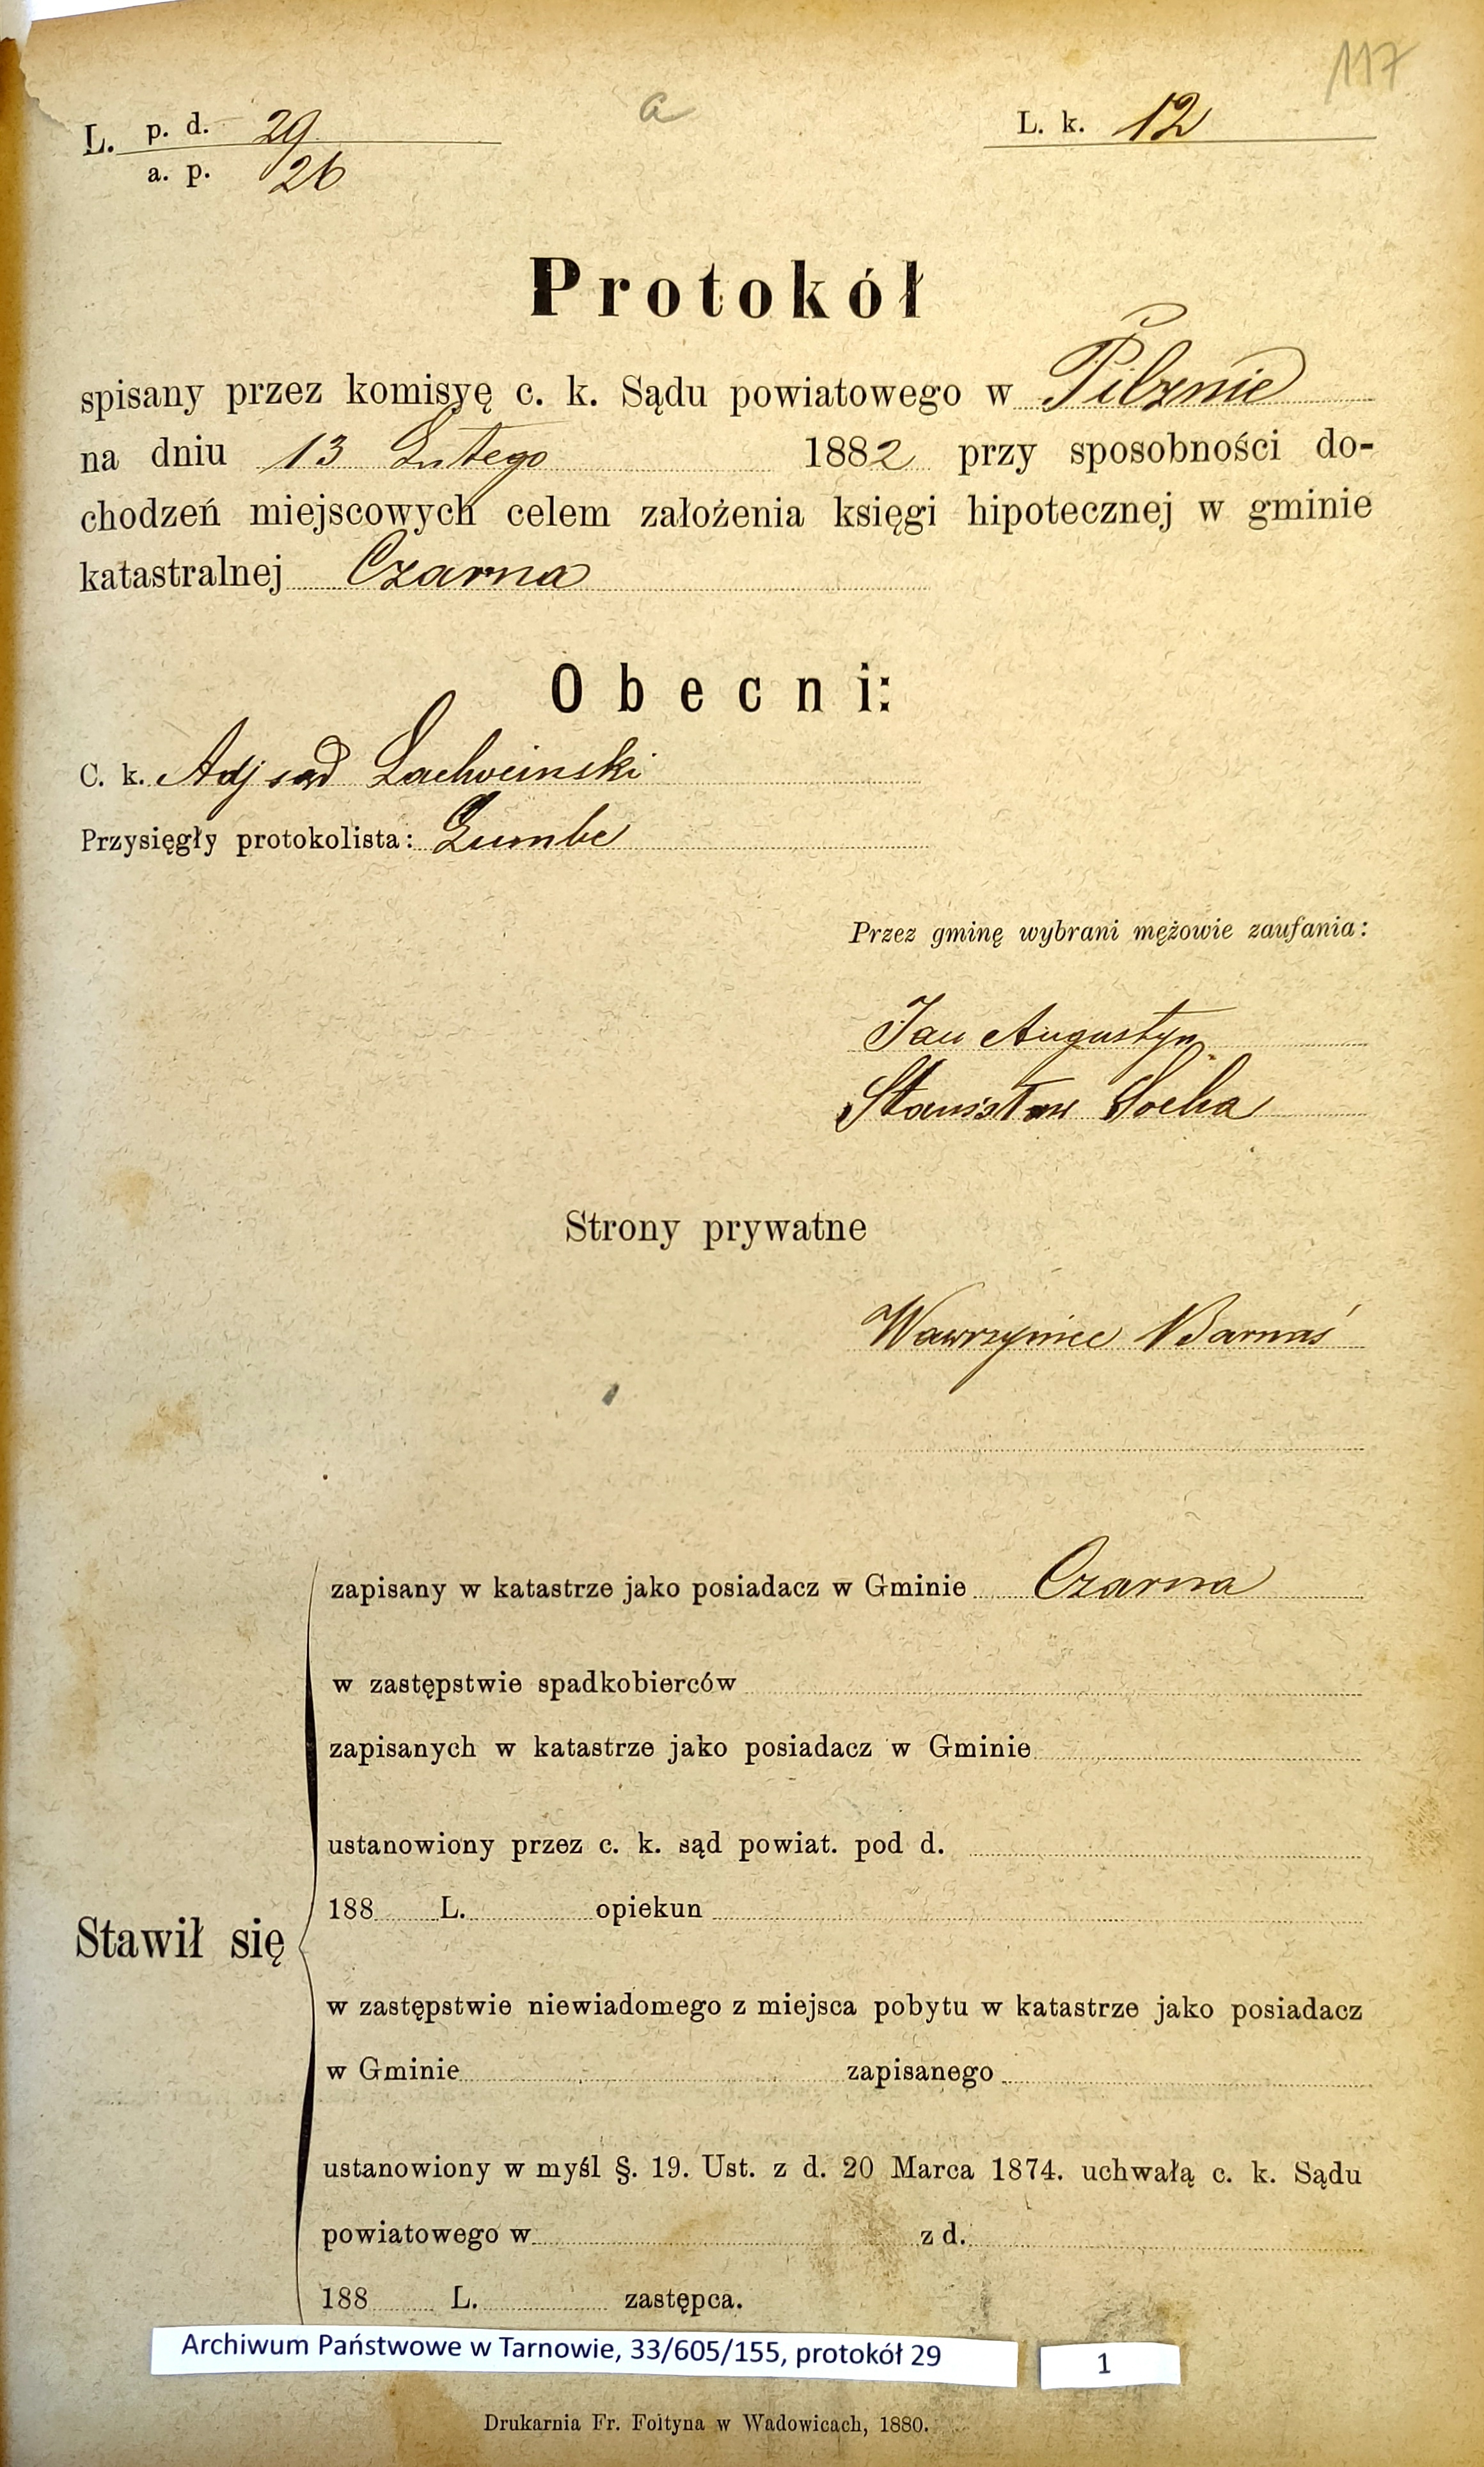 117
L. p. d. 29 a L. k. 12
a. p. 26
Protokół
spisany przez komisyę c. k. Sądu powiatowego w Pilznie
na dniu 13 Lutego 1882 przy sposobności do-
chodzeń miejscowych celem założenia księgi hipotecznej w gminie
katastralnej Czarna
Obecni:
C. k. Adj sąd
Przysięgły protokolista:
Przez gminę wybrani mężowie zaufania:
Jan Augustyn
Stanisław Socha
Strony prywatne
Wawrzyniec Barnaś
zapisany w katastrze jako posiadacz w Gminie Czarna
w zastępstwie spadkobierców
zapisanych w katastrze jako posiadacz w Gminie
ustanowiony przez c. k. sąd powiat. pod d.
188 L. opiekun
Stawił się
w zastępstwie niewiadomego z miejsca pobytu w katastrze jako posiadacz
w Gminie zapisanego
ustanowiony w myśl §. 19. Ust. z d. 20 Marca 1874. uchwałą c. k. Sądu
powiatowego w z d.
188 L. zastępca.
Archiwum Państwowe w Tarnowie, 33/605/155, protokół 29 1
Drukarnia Fr. Foltyna w Wadowicach, 1880.